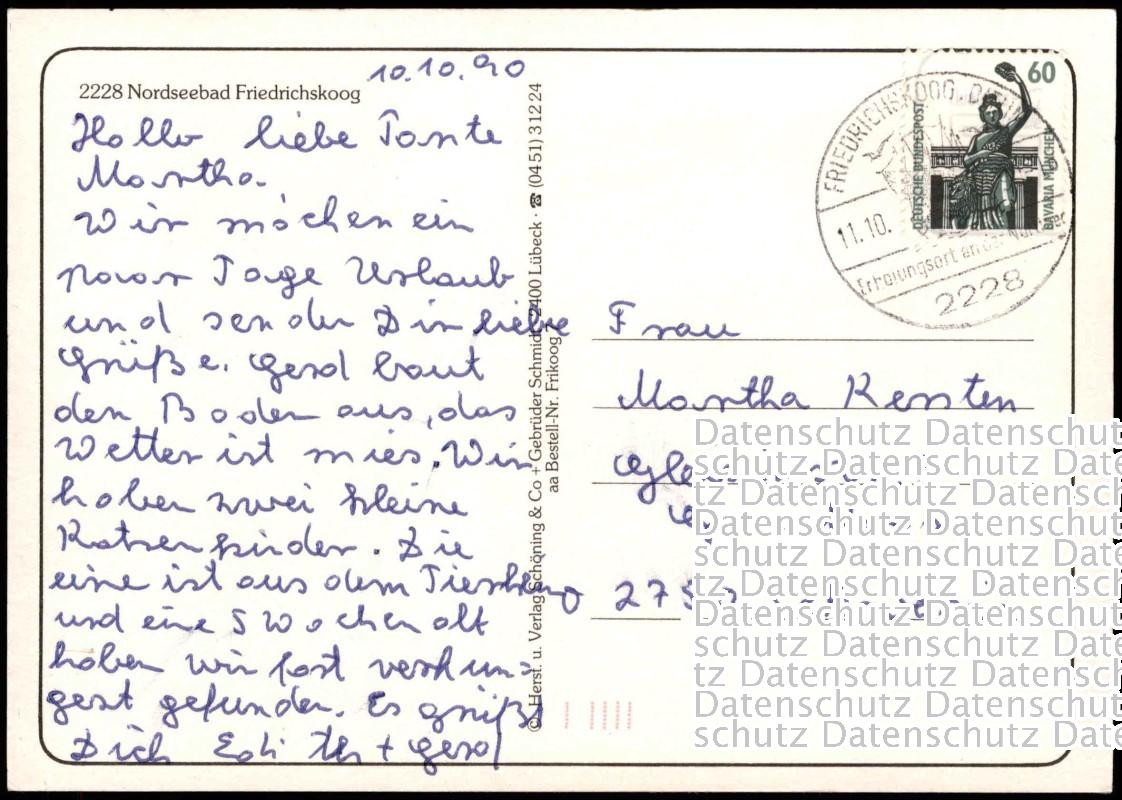 2228 Nordseebad Friedrichskoog
10.10.90
Hallo liebe Tante
Martha.
Wir machen ein
paar Tage Urlaub
und senden Dir liebe
Grüße. Gerd baut
den Boden aus, das
Wetter ist mies. Wir
haben zwei kleine
Katzenkinder. Die
eine ist aus dem Tierheim
und eine 5 Wochen alt
haben wir fast verhun-
gert gefunden. Es grüßt
Dich Edith + Gerd
© Herst. u. Verlag Schöning & Co + Gebrüder Schmidt · 2400 Lübeck · ☎ (0451) 312 24
aa Bestell-Nr. Frikoog
FRIEDRICHSKOOG
11.10.
Erholungsort an der
2228
60
DEUTSCHE BUNDESPOST
BAVARIA MÜNCHEN
Frau
Martha Kersten
27
Datenschutz Datenschut
schutz Datenschutz Date
tz Datenschutz Datensch
Datenschutz Datenschut
schutz Datenschutz Date
tz Datenschutz Datensch
Datenschutz Datenschut
schutz Datenschutz Date
tz Datenschutz Datensch
Datenschutz Datenschut
schutz Datenschutz Date